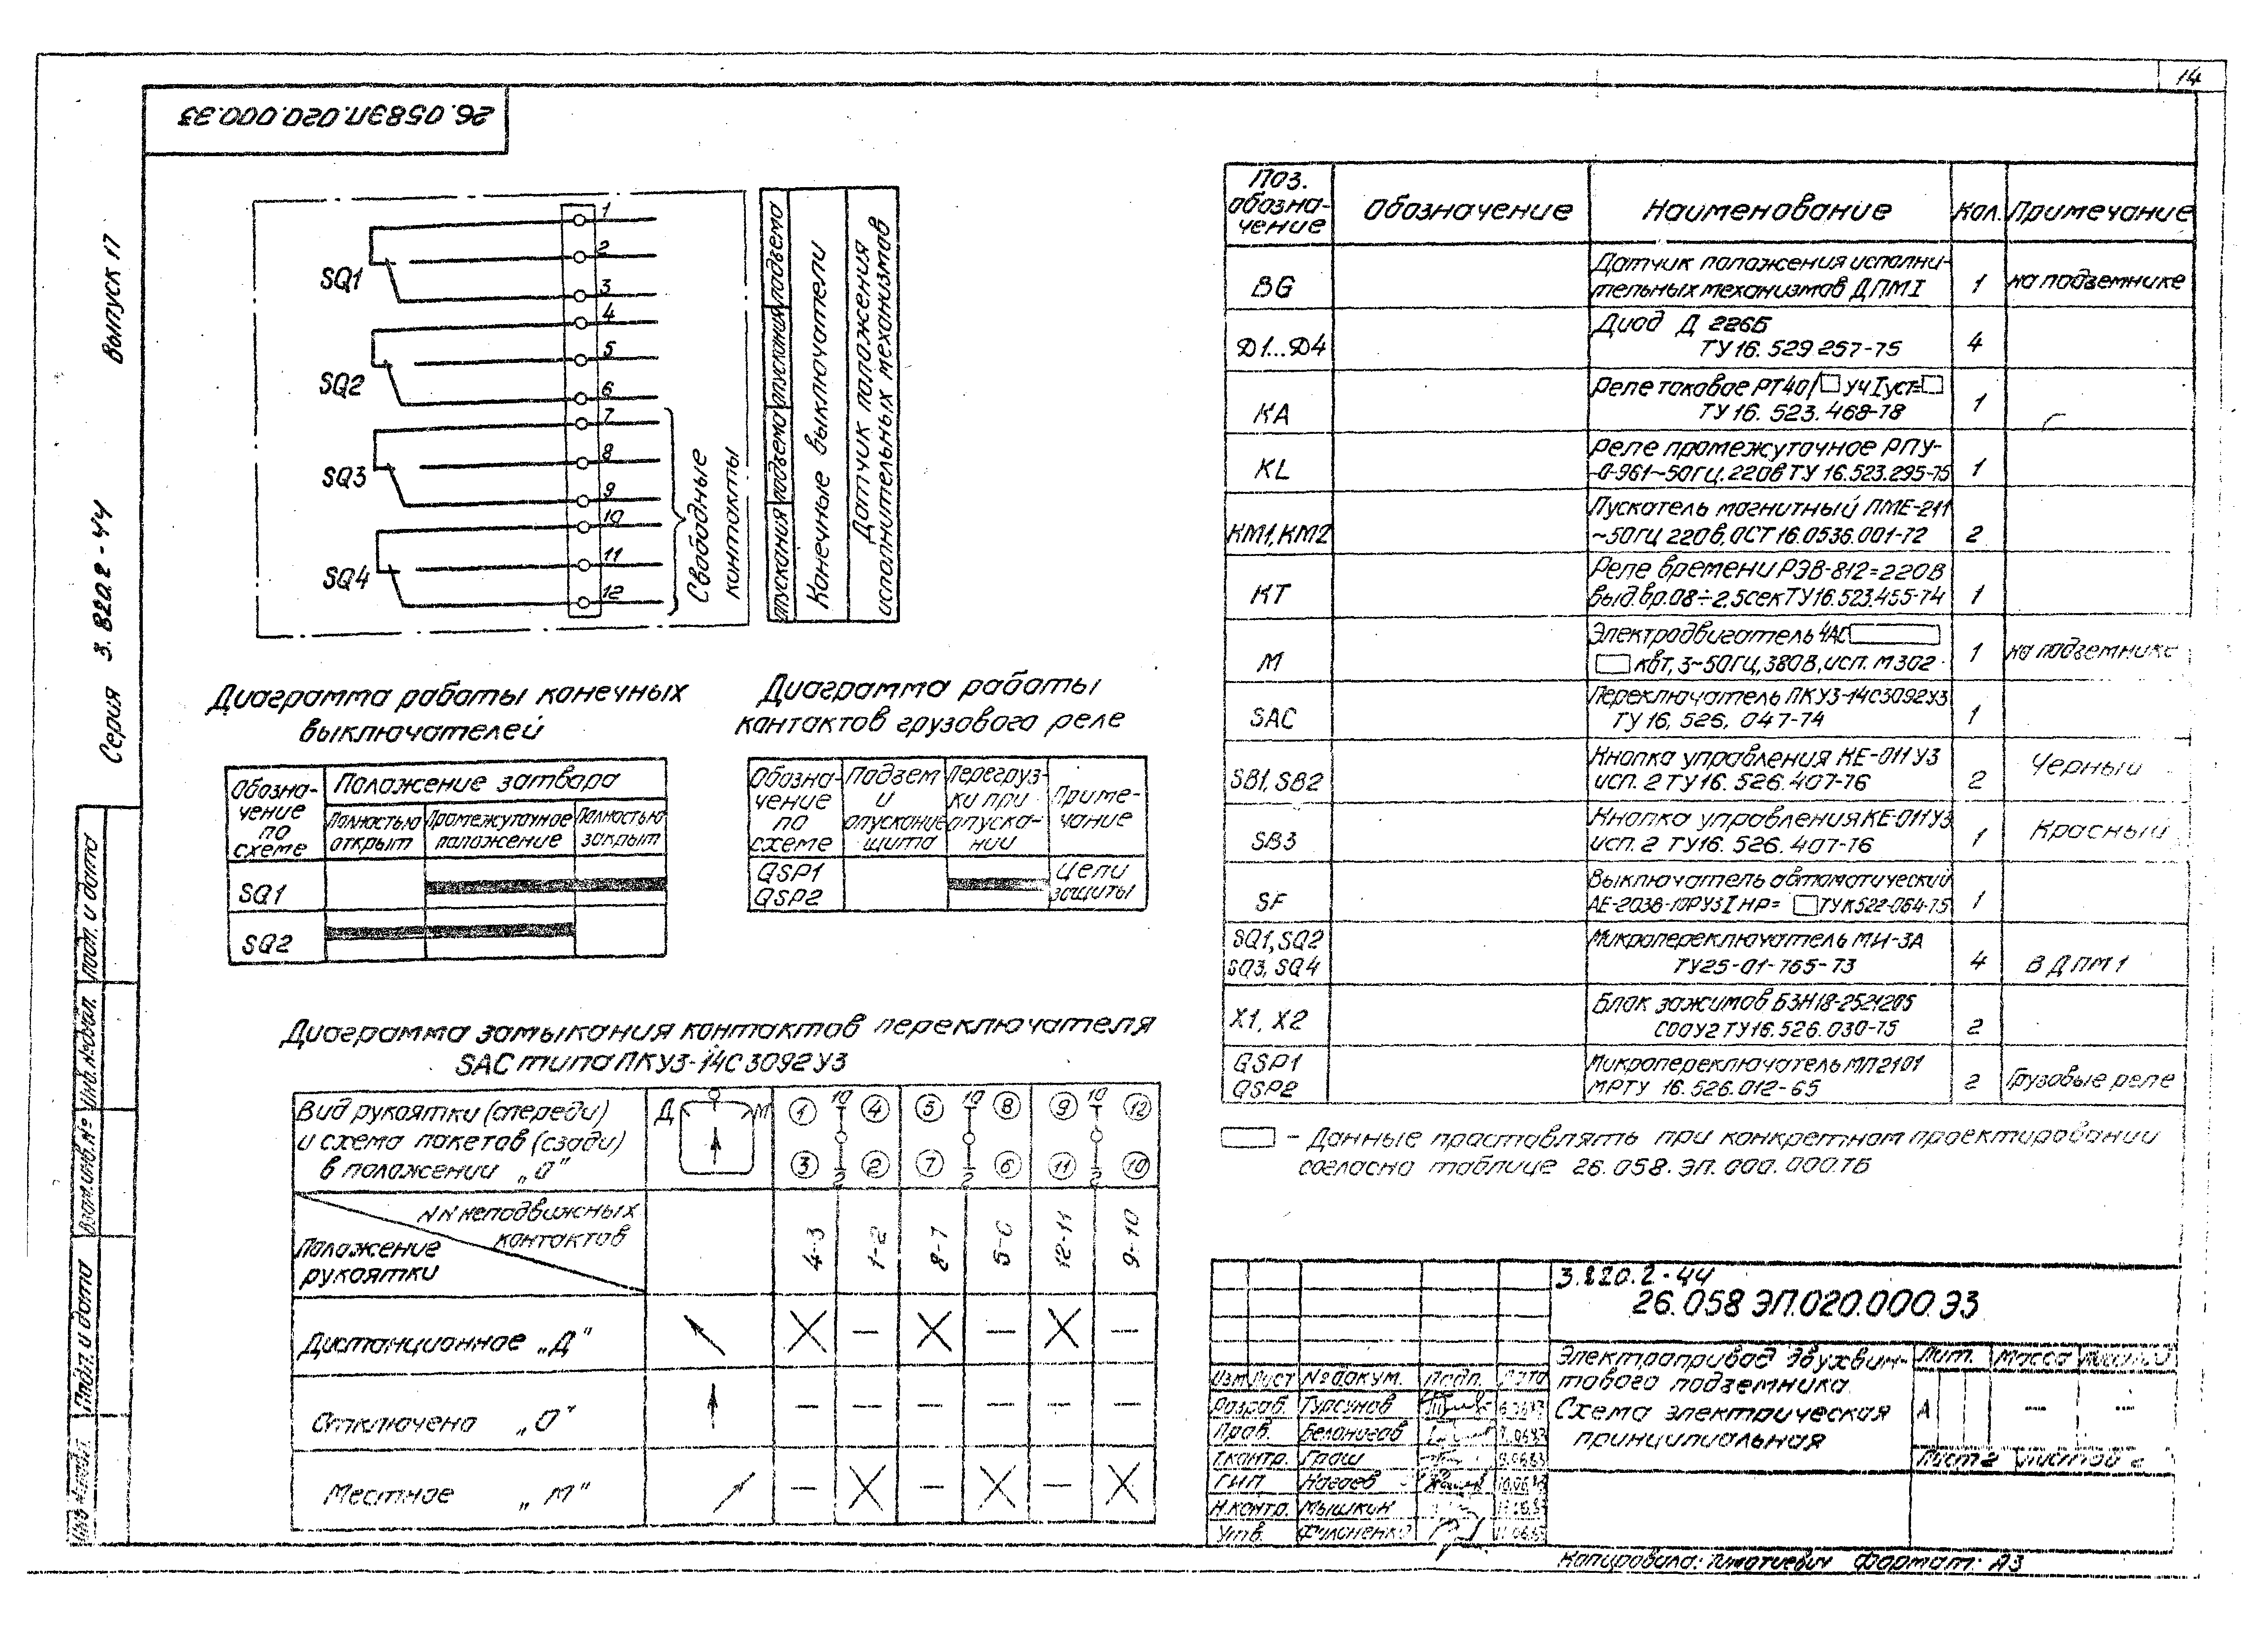 14
26.058ЭП.020.000.ЭЗ
Выпуск 17
Серия 3.820.2-44
SQ1
SQ2
SQ3
SQ4
1
2
3
4
5
6
7
8
9
10
11
12
Свободные
контакты
опускания подъема опускания подъема
Конечные выключатели
Датчик положения
исполнительных механизмов
Диаграмма работы конечных
выключателей
Обозна-
чение
по
схеме
Положение затвора
Полностью
открыт
Промежуточное
положение
Полностью
закрыт
SQ1
SQ2
Диаграмма работы
контактов грузового реле
Обозна-
чение
по
схеме
Подъем
и
опускание
щита
Перегруз-
ки при
опуска-
нии
Приме-
чание
QSP1
QSP2
Цепи
защиты
Диаграмма замыкания контактов переключателя
SAC типа ПКУ3-14С3092У3
Вид рукоятки (спереди)
и схема пакетов (сзади)
в положении „0"
Д М
1 10 4 5 10 8 9 10 12
3 2 2 7 2 6 11 2 10
NN неподвижных
контактов
Положение
рукоятки
4-3
1-2
8-7
5-6
12-11
9-10
Дистанционное „Д"
Отключено „О"
Местное „М"
Поз.
обозна-
чение
Обозначение
Наименование
Кол.
Примечание
BG
Датчик положения исполни-
тельных механизмов ДПМI
1
на подъемнике
Д1...Д4
Диод Д 226Б
ТУ16.529.257-75
4
КА
Реле токовое РТ40/ У4 Iуст=
ТУ 16.523.468-78
1
KL
Реле промежуточное РПУ-
-0-961~50Гц.220в ТУ 16.523.295-75
1
КМ1, КМ2
Пускатель магнитный ПМЕ-211
~50Гц 220в, ОСТ 16.0536.001-72
2
КТ
Реле времени РЭВ-812=220В
выд.вр.08÷2,5сек ТУ16.523.455-74
1
М
Электродвигатель 4АС
квт, 3~50Гц, 380В, исп. М302
1
на подъемнике
SAC
Переключатель ПКУ3-14С3092У3
ТУ 16, 526, 047-74
1
SB1, SB2
Кнопка управления КЕ-011 У3
исп. 2 ТУ16. 526. 407-76
2
Черный
SB3
Кнопка управления КЕ-011У3
исп. 2 ТУ16. 526. 407-76
1
Красный
SF
Выключатель автоматический
АЕ-2036-10РУ3 I НР= ТУК522-064-75
1
SQ1, SQ2
SQ3, SQ4
Микропереключатель МИ-3А
ТУ25-01-765-73
4
В ДПМ1
X1, X2
Блок зажимов БЗН18-2521205
С00У2 ТУ16.526.030-75
2
QSP1
QSP2
Микропереключатель МП2101
МРТУ 16.526.012-65
2
Грузовые реле
- Данные проставлять при конкретном проектировании
согласно таблице 26.058.ЭП.000.000.ТБ
3.820.2-44
26.058 ЭП.020.000.ЭЗ
Изм Лист № докум. Подп. Дата
Разраб. Турсунов
Пров. Белоногов
Т.контр. Граш
ГИП Нагаев
Н.контр. Мышкин
Утв. Филоненко
Электропривод двухвин-
тового подъемника
Схема электрическая
принципиальная
Лит. Масса
А — —
Лист 2 Листов 2
Подп. и дата
Инв. № дубл.
Взам. инв. №
Подп. и дата
Копировала: Формат: А3